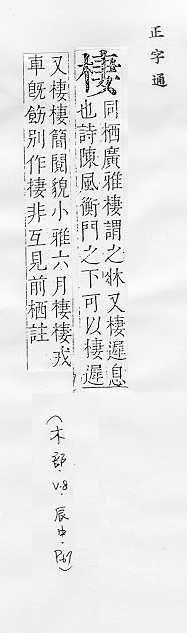 正字通
棲 同栖廣雅棲謂之牀又棲遲息
也詩陳風衡門之下可以棲遲
又棲棲簡閱貌小雅六月棲棲戎
車旣飭別作棲非互見前栖註
(木部.V.8.辰中.P.67)